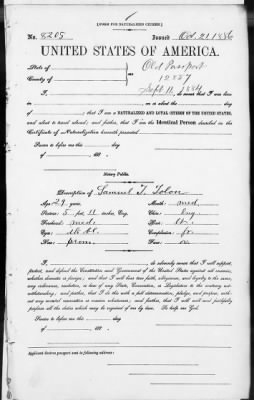 [FORM FOR NATURALIZED CITIZEN.]
No. 8205 Issued Oct. 21 1886
UNITED STATES OF AMERICA.
State of
County of
Old Passport
12857
Sept. 11, 1884
I, do swear that I was born
in on or about the day
of ; that I am a NATURALIZED AND LOYAL CITIZEN OF THE UNITED STATES,
and about to travel abroad; and further, that I am the Identical Person described in the
Certificate of Naturalization herewith presented
Sworn to before me this day
of 188
Notary Public.
Description of Samuel T. Tolon
Age: 29 years. Mouth: med.
Stature: 5 feet 11 inches Eng. Chin: 
Forehead: med. Hair: 
Eyes: Complexion: fr
Nose: prom. Face: ov
I, do solemnly swear that I will support,
protect, and defend the Constitution and Government of the United States against all enemies, whether
domestic or foreign; and that I will bear true faith, allegiance, and loyalty to the same,
any ordinance, resolution, or law of any State, Convention, or Legislature to the contrary notwithstanding;
and further, that I do this with a full determination, pledge, and purpose, without
any mental reservation or evasion whatsoever; and further, that I will well and faithfully
perform all the duties which may be required of me by law. So help me God.
Sworn to before me this day
of 188
Applicant desires passport sent to following address: